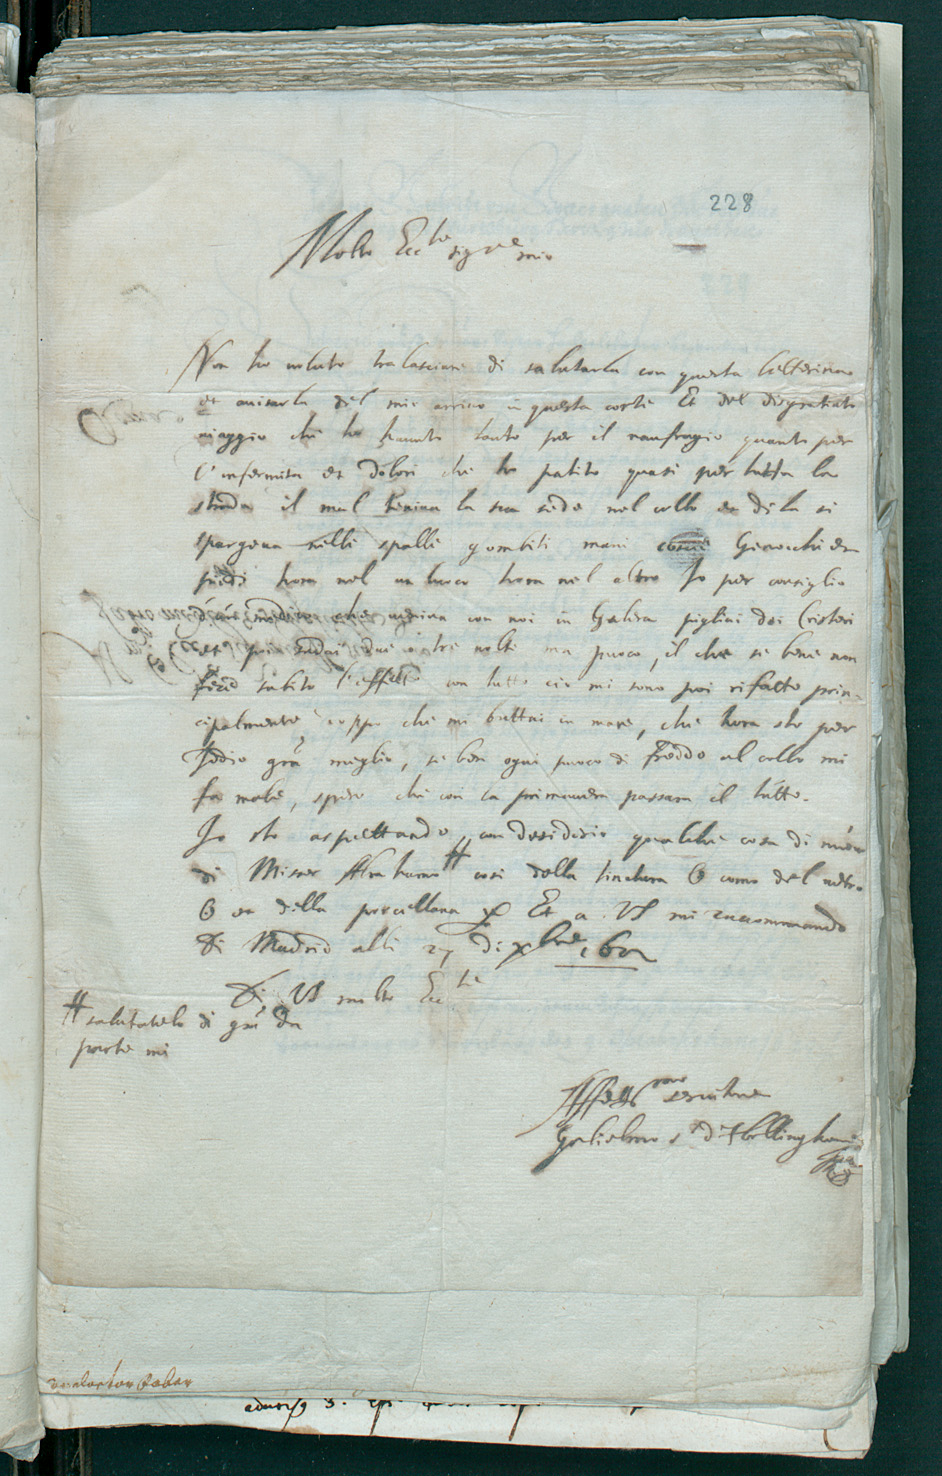 228
Molto Ecc.te sig.re mio
Non ho voluto tralasciare di salutarla con questa letterina
et avisarla del mio arrivo in questa corte Et del disgratiato
viaggio che ho havuto tanto per il naufragio quanto per
l'infermita et dolori che ho patito quasi per tutta la
strada il mal teniva la sua sede nel collo et di la si
spargeva nelli spalli gombiti mani Ginocchi et
piedi hora nel un luoco hora nel altro Io per consiglio
che veniva con noi in Galera pigliai doi Cristeri
et poi sudai due o tre volte ma puoco, il che se bene non
fece subito l'effetto con tutto cio mi sono poi rifatto prin-
cipalmente, doppo che mi buttai in mare, che hora sto per
Iddio gra meglio, se ben ogni puoco di freddo al collo mi
fa male, spero che con la primavera passara il tutto.
Io sto aspettando con desiderio qualche cosa di nuovo
di Miser Abrahamo # cosi della tinctura del vetro
et della porcellana Et a VS mi racommando
Di Madrid alli 27 di xbre 1602
Di VS molto Ecc.te
# salutatelo di gra da
parte mi
Aff.mo servitore
Gulielmo